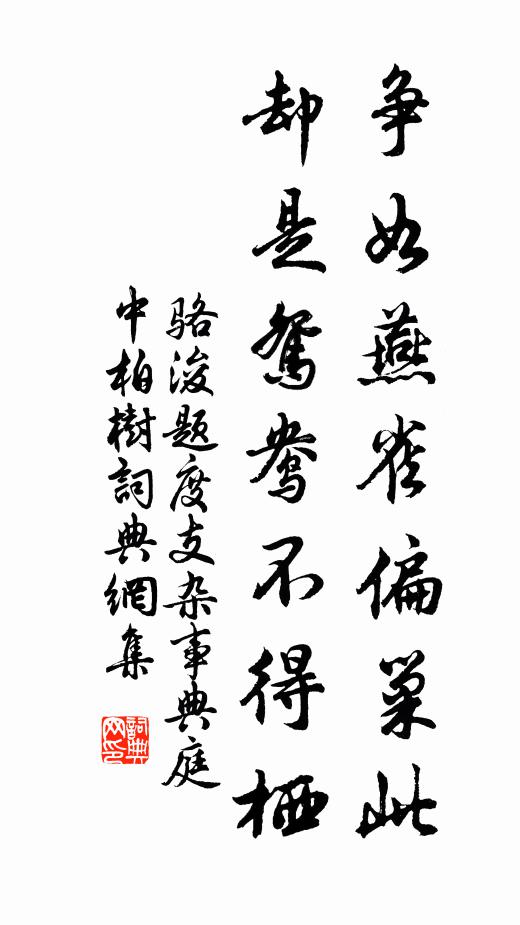 争如燕雀偏巢此
却是鸳鸯不得栖
骆浚题度支杂事典庭
中柏樹詞典網集
詞典网印